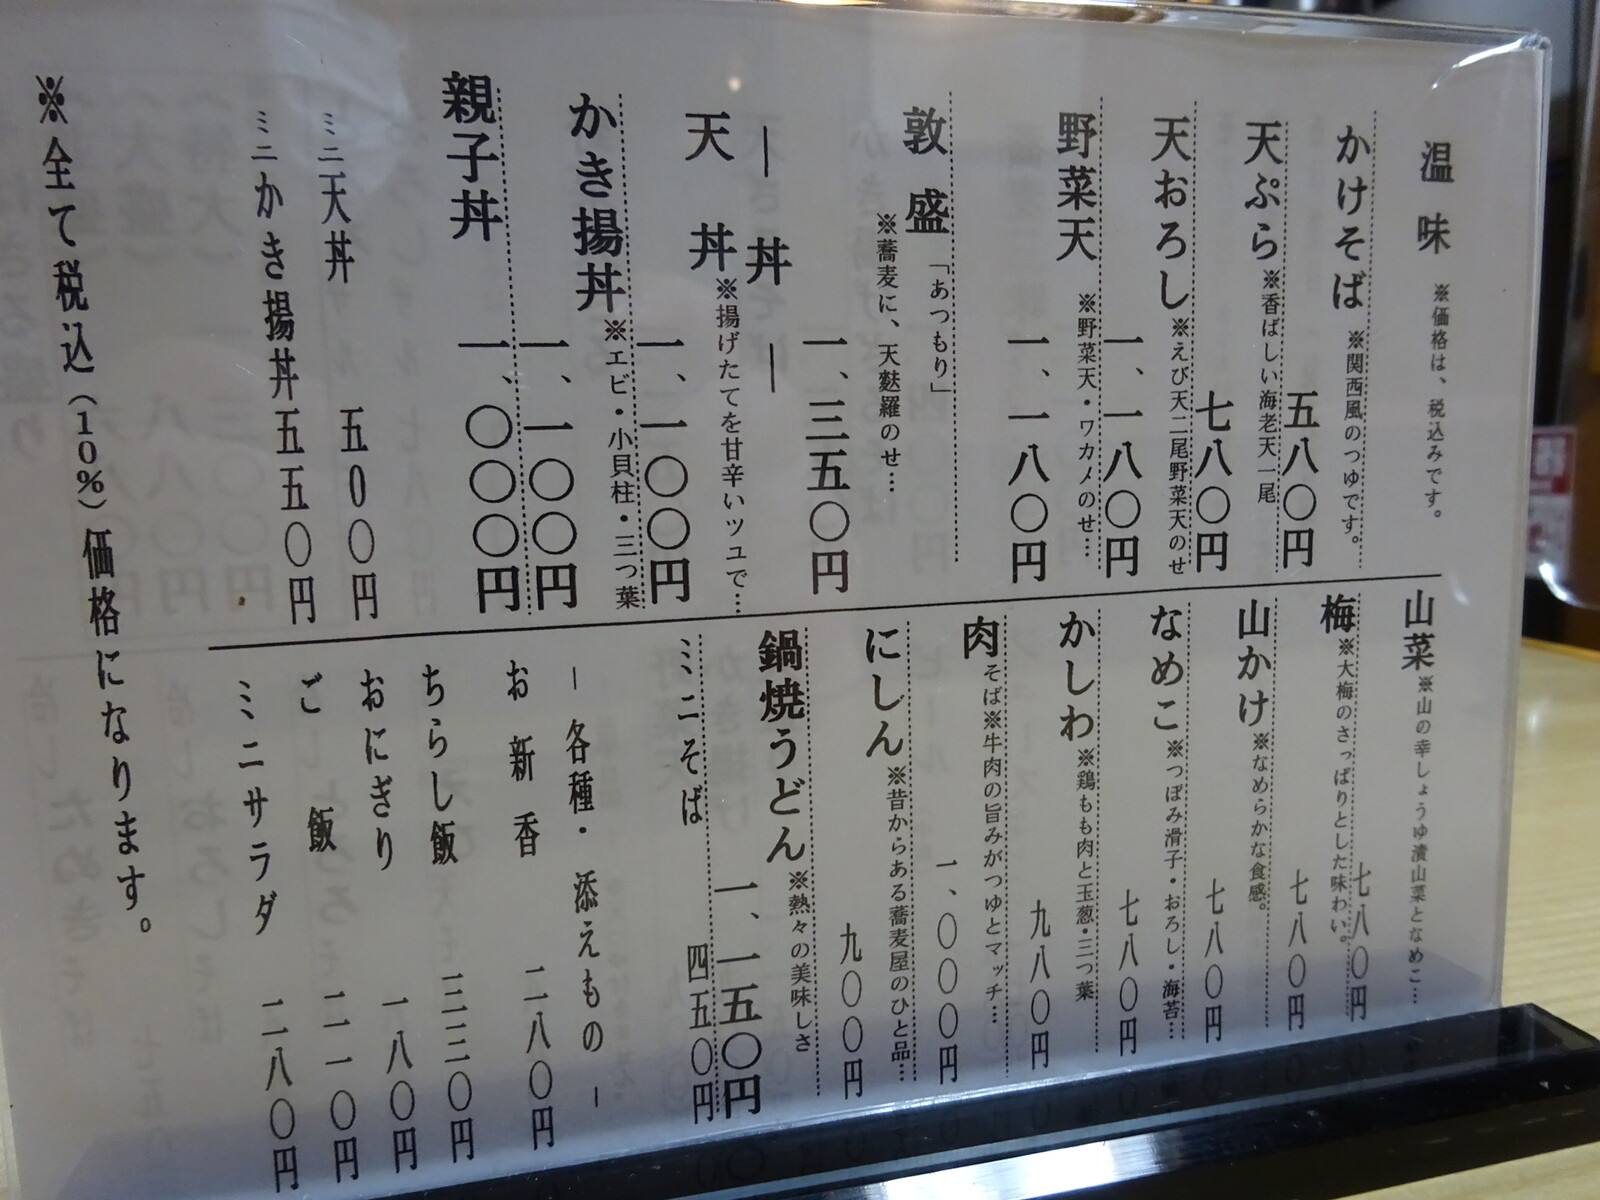 温味 ※価格は、税込みです。
かけそば ※関西風のつゆです。
五八〇円
天ぷら ※香ばしい海老天一尾
七八〇円
天おろし ※えび天二尾野菜天のせ
一、一八〇円
野菜天 ※野菜天・ワカメのせ…
一、一八〇円
敦盛 「あつもり」
※蕎麦に、天麩羅のせ…
一、三五〇円
―丼―
天丼 ※揚げたてを甘辛いツユで…
一、一〇〇円
かき揚丼 ※エビ・小貝柱・三つ葉
一、一〇〇円
親子丼
一、〇〇〇円
ミニ天丼 五〇〇円
ミニかき揚丼 五五〇円
山菜 ※山の幸しょうゆ漬山菜となめこ…
七八〇円
梅 ※大梅のさっぱりとした味わい。
七八〇円
山かけ ※なめらかな食感。
七八〇円
なめこ ※つぼみ滑子・おろし・海苔…
七八〇円
かしわ ※鶏もも肉と玉葱・三つ葉
九八〇円
肉そば ※牛肉の旨みがつゆとマッチ…
一、〇〇〇円
にしん ※昔からある蕎麦屋のひと品…
九〇〇円
鍋焼うどん ※熱々の美味しさ
一、一五〇円
ミニそば 四五〇円
―各種・添えもの―
お新香 二八〇円
ちらし飯 三三〇円
おにぎり 一八〇円
ご飯 二一〇円
ミニサラダ 二八〇円
※全て税込(10%)価格になります。